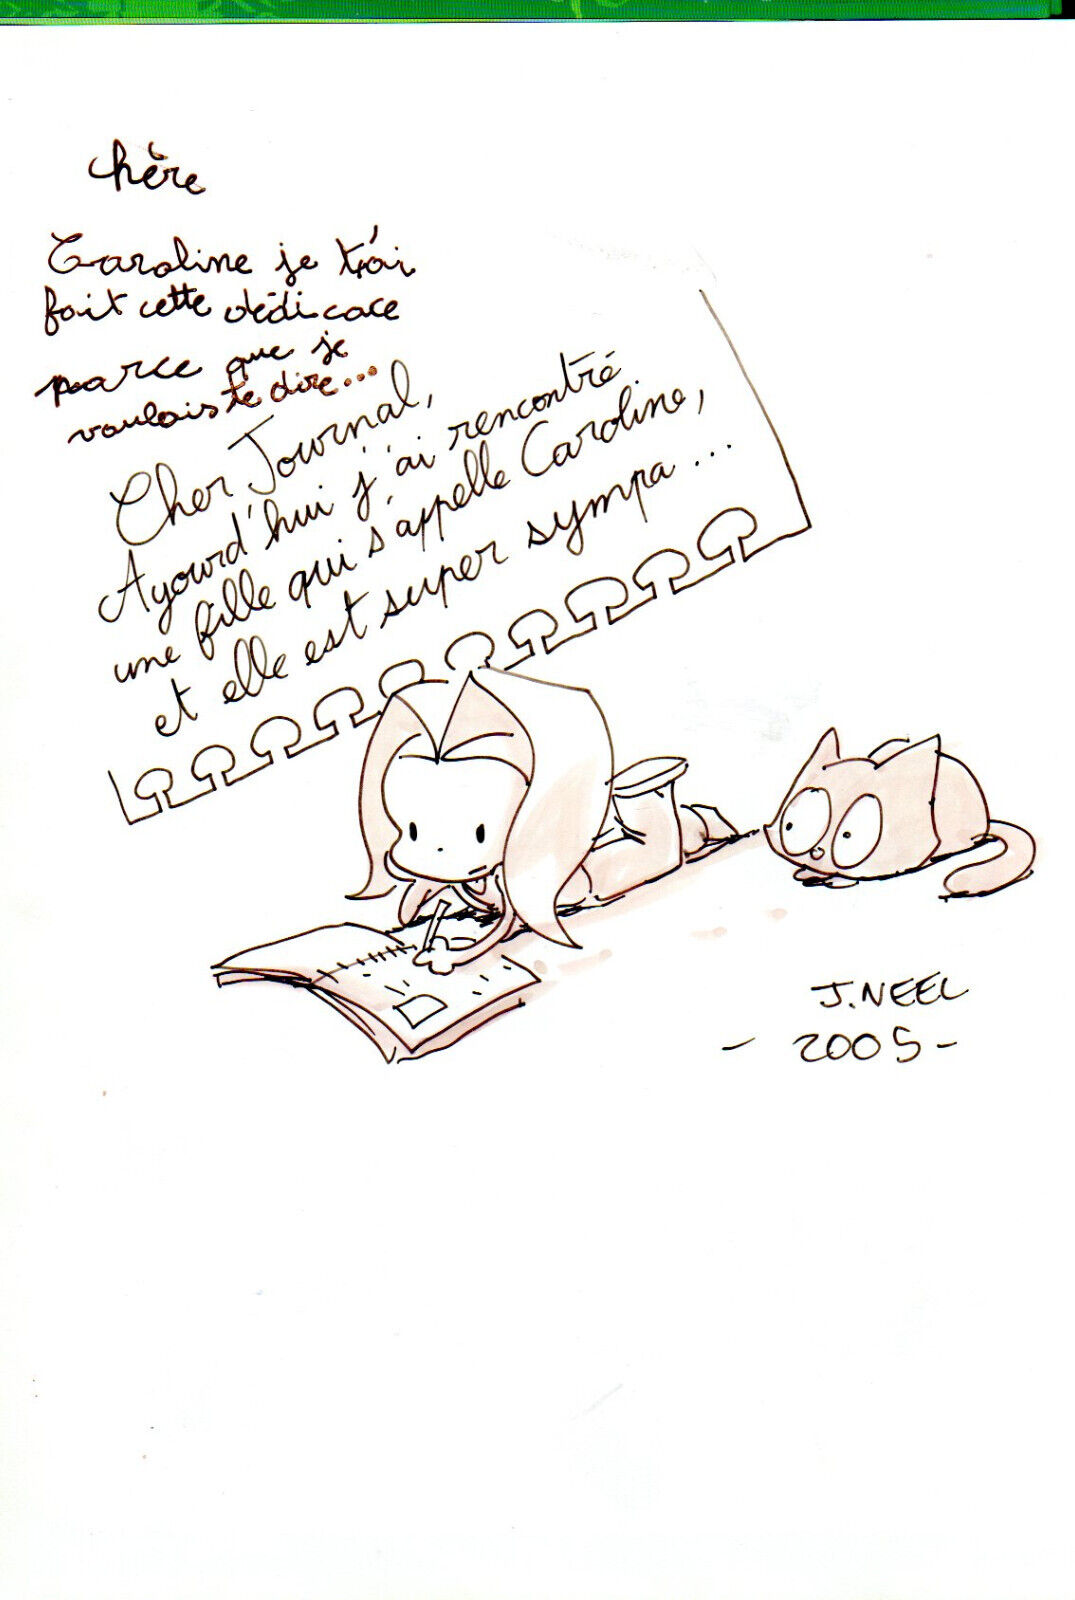 chère
Caroline je t'ai
fait cette dédicace
parce que je
voulais te dire...
Cher Journal,
Ajourd'hui j'ai rencontré
une fille qui s'appelle Caroline,
et elle est super sympa...
J.NEEL
- 2005 -